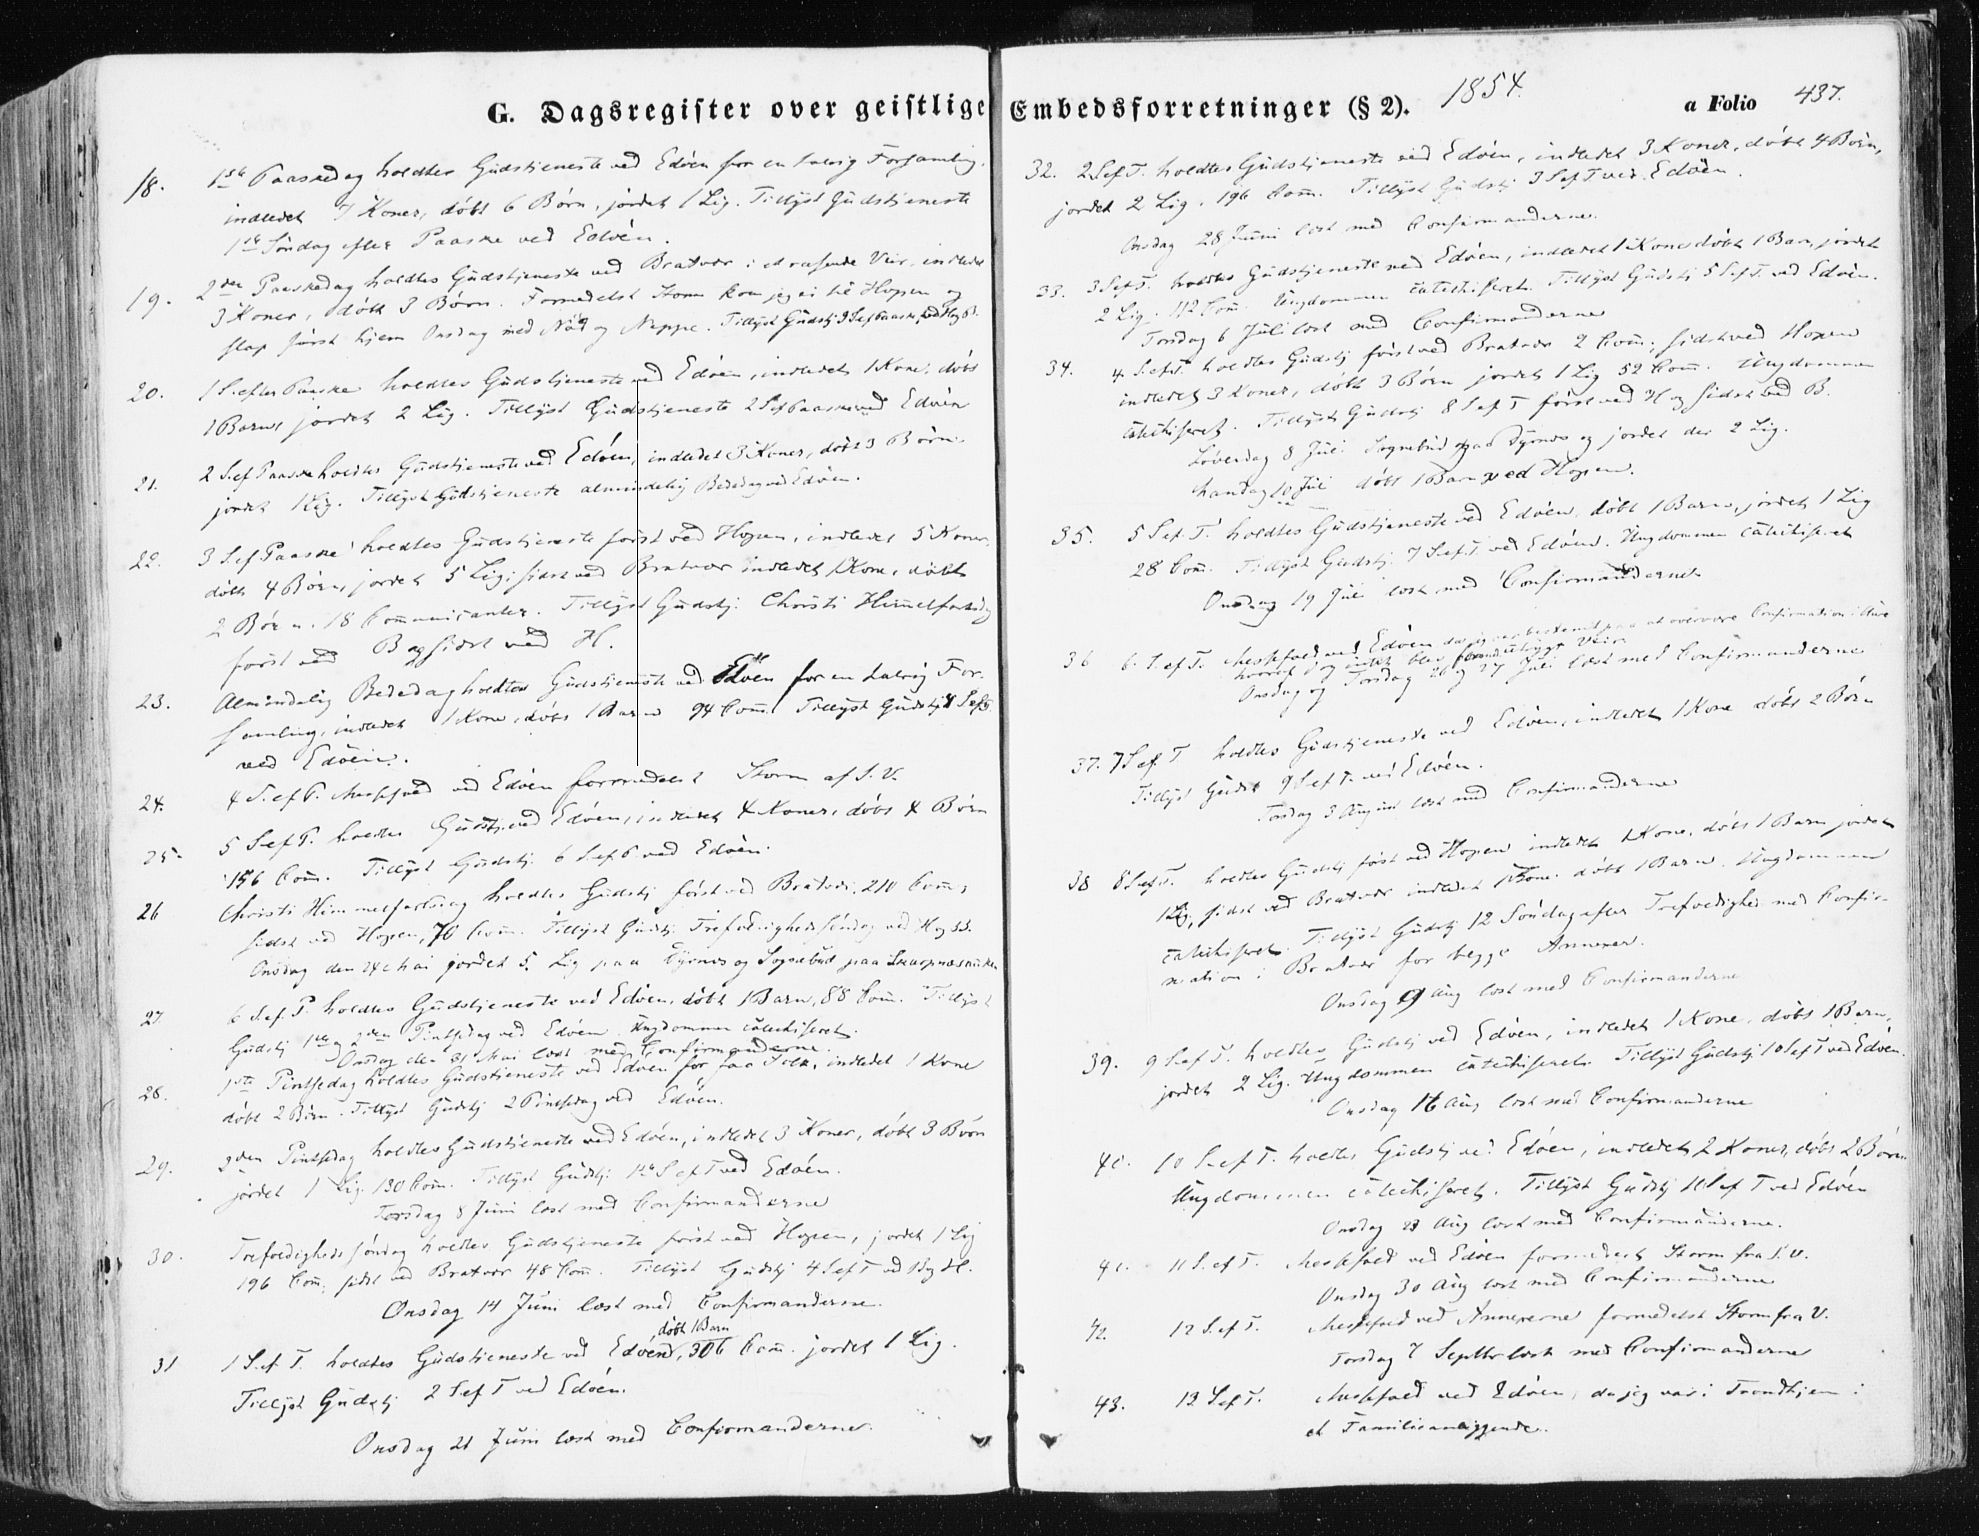 G. Dagsregister over geistlige Embedsforretninger (§ 2). 1854. a Folio 437.
18. 1ste Paaskedag holdtes Gudstjeneste ved Edøen for en talrig Forsamling,
indledet 7 Koner, døbt 6 Børn, jordet 1 Lig. Tillyst Gudstjeneste
1ste Søndag efter Paaske ved Edøen.
19. 2den Paaskedag holdtes Gudstjeneste ved Bratvær i et rasende Veir, indledet
3 Koner, døbt 3 Børn. Formedelst Storm kom jeg ei til Hopen og
slap først hjem Onsdag med Nød og Neppe. Tillyst Gudstj 3 S ef Paaske, ved H og B.
20. 1 S. efter Paaske holdtes Gudstjeneste ved Edøen, indledet 1 Kone, døbt
1 Barn, jordet 2 Lig. Tillyst Gudstjeneste 2 S ef Paaske ved Edøen
21. 2 S. ef Paaske holdtes Gudstjeneste ved Edøen, indledet 3 Koner, døbt 3 Børn.
jordet 1 Lig. Tillyst Gudstjeneste almindelig Bededag ved Edøen.
22. 3 S. ef Paaske holdtes Gudstjeneste først ved Hopen, indledet 5 Koner,
døbt 4 Børn, jordet 5 Lig; sidst ved Bratvær indledet 1 Kone, døbt
2 Børn. 18 Communicanter. Tillyst Gudstj. Christi Himmelfartsdag
først ved B og sidst ved H.
23. Almindelig Bededag holdtes Gudstjeneste ved Edøen for en talrig For-
samling, indledet 1 Kone, døbt 1 Barn 94 Com. Tillyst Gudstj 4 S ef P.
ved Edøen.
24. 4 S. ef P. Messefald ved Edøen formedelst Storm af S. V.
25. 5 S. ef P. holdtes Gudstj. ved Edøen, indledet 4 Koner, døbt 4 Børn
156 Com. Tillyst Gudstj. 6 S. ef P ved Edøen.
26 Christi Himmelfartsdag holdtes Gudstj først ved Bratvær, 210 Com;
sidst ved Hopen, 70 Com. Tillyst Gudstj. Trefoldigheds Søndag ved H og B.
Onsdag den 24 Mai jordet 5 Lig paa Tyrnæs og Sognebud paa
27. 6 S. ef. P. holdtes Gudstjeneste ved Edøen, døbt 1 Barn, 88 Com. Tillyst
Gudstj 1ste og 2den Pintsedag ved Edøen. Ungdommen catechiseret.
Onsdag den 31 Mai læst med Confirmanderne.
28. 1ste Pintsedag holdtes Gudstjeneste ved Edøen for faa Folk, indledet 1 Kone
døbt 2 Børn. Tillyst Gudstj 2 Pintsedag ved Edøen.
29. 2den Pintsedag holdtes Gudstjeneste ved Edøen, indledet 3 Koner, døbt 3 Børn
jordet 1 Lig. 130 Com. Tillyst Gudstj. 1ste S ef T ved Edøen.
Torsdag 8 Juni læst med Confirmanderne
30. Trefoldigheds Søndag holdtes Gudstjeneste først ved Hopen, jordet 1 Lig
196 Com; sidst ved Bratvær 48 Com. Tillyst Gudstj 4 S ef T ved B og H.
Onsdag 14 Juni læst med Confirmanderne.
31 1 S. ef. T. holdtes Gudstjeneste ved Edøen, døbt 1 Barn, 306 Com. jordet 1 Lig.
Tillyst Gudstj 2 S ef T ved Edøen.
Onsdag 21 Juni læst med Confirmanderne.
32. 2 S ef T. holdtes Gudstjeneste ved Edøen, indledet 3 Koner, døbt 4 Børn,
jordet 2 Lig, 196 Com. Tillyst Gudstj 3 S ef T ved Edøen.
Onsdag 28 Juni læst med Confirmanderne.
33. 3 S ef T. holdtes Gudstjeneste ved Edøen, indledet 1 Kone døbt 1 Barn, jordet
2 Lig. 112 Com. Ungdommen catechiseret. Tillyst Gudstj 5 S ef T. ved Edøen.
Torsdag 6 Juli læst med Confirmanderne
34. 4 S. ef T. holdtes Gudstj først ved Bratvær 2 Com; sidst ved Hopen
indledet 3 Koner, døbt 3 Børn jordet 1 Lig 52 Com. Ungdommen
catechiseret. Tillyst Gudstj 8 S ef T først ved H og sidst ved B.
Løverdag 8 Juli Sognebud paa Tyrnæs og jordet der 2 Lig.
Mandag 10 Juli døbt 1 Barn ved Hopen.
35. 5 S ef. T. holdtes Gudstjeneste ved Edøen, døbt 1 Barn, jordet 1 Lig
28 Com. Tillyst Gudstj. 7 S. ef. T. ved Edøen. Ungdommen catechiseret
Onsdag 19 Juli læst med Confirmanderne
36 6. S. ef T. Messefald ved Edøen da jeg var bestemt paa at overvære Confirmation i Aure
hvoraf dog intet blev formedelst Veir
Onsdag og Torsdag 26 og 27 Juli læst med Confirmanderne
37. 7 S ef. T holdtes Gudstjeneste ved Edøen, indledet 1 Kone døbt 2 Børn
Tillyst Gudst 9 S ef T. ved Edøen.
Torsdag 3 August læst med Confirmanderne
38 8 S ef T. holdtes Gudstj først ved Hopen indledet 1 Kone, døbt 1 Barn jordet
1 Lig, sidst ved Bratvær indledet 1 Kone. døbt 1 Barn. Ungdommen
catechiseret. Tillyst Gudstj 12 Søndag efter Trefoldighed med Confir-
mation i Bratvær for begge Annexer.
Onsdag 9 Aug læst med Confirmanderne
39. 9 S. ef T. holdtes Gudstj ved Edøen, indledet 1 Kone, døbt 1 Barn,
jordet 2 Lig. Ungdommen catechiseret. Tillyst Gudstj 10 S ef T ved Edøen.
Onsdag 16 Aug læst med Confirmanderne
40. 10 S. ef T. holdtes Gudstj ved Edøen, indledet 2 Koner, døbt 2 Børn
Ungdommen catechiseret. Tillyst Gudstj 11 S ef T ved Edøen
Onsdag 23 Aug læst med Confirmanderne.
41. 11 S. ef T. Messefald ved Edøen formedelst Storm fra S. V.
Onsdag 30 Aug læst med Confirmanderne
42. 12 S. ef T. Messefald ved Annexerne formedelst Storm fra V.
Torsdag 7 Septbr læst med Confirmanderne
43. 13 S ef T. Messefald ved Edøen, da jeg var i Trondhjem i
et Familieanliggende.